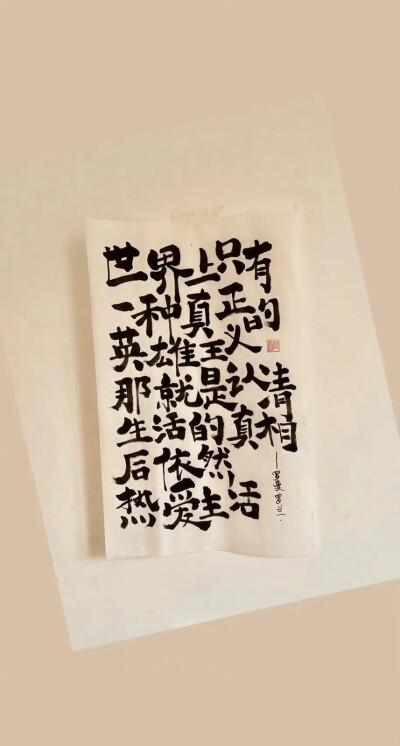 世界上只有
一种真正的
英雄主义
那就是认清
生活的真相
后依然，
热爱生活
——罗曼罗兰.